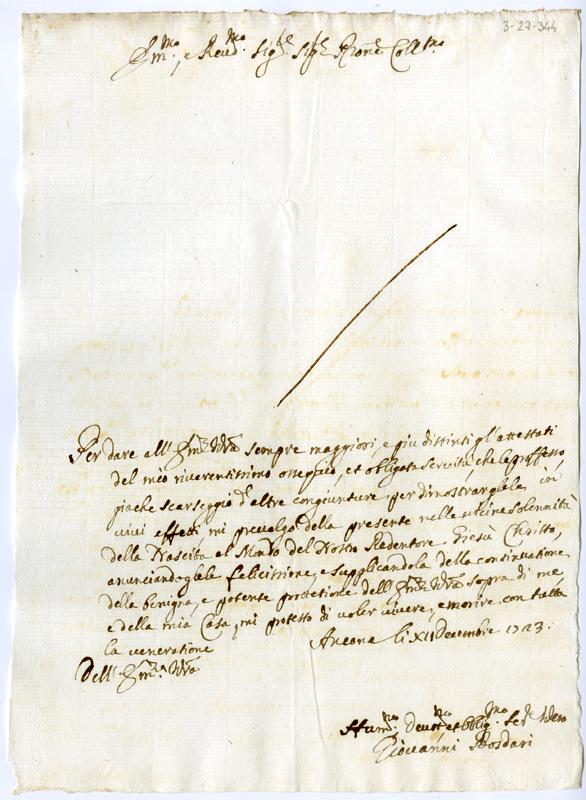 3-27-344
Em.mo, e Reu.mo Sig.re Sig.re Pron.e Coll.mo
Per dare all' Em.za Vra sempre maggiori, e piu distinti gl' attestati
del mio riuerentissimo ossequio, et obligata seruitù, che le professo,
giache scarseggio d'altre congiunture per dimostrarglela in
uiui effetti, mi preualgo della presente nelle uicine solennità
della Nascita al Mondo del Nostro Redentore Giesù Christo,
anunciandoglele felicissime, e supplicandola della continuatione
della benigna, e potente protetione dell' Em.za Vra sopra di me,
e della mia Casa, mi protesto di uoler uiuere, e morire con tutta
la ueneratione
Ancona li XII Decembre 1723.
Dell' Em.za Vra
Hum.mo Deuot.mo et Oblig.mo Ser.
Giouanni Bosdari